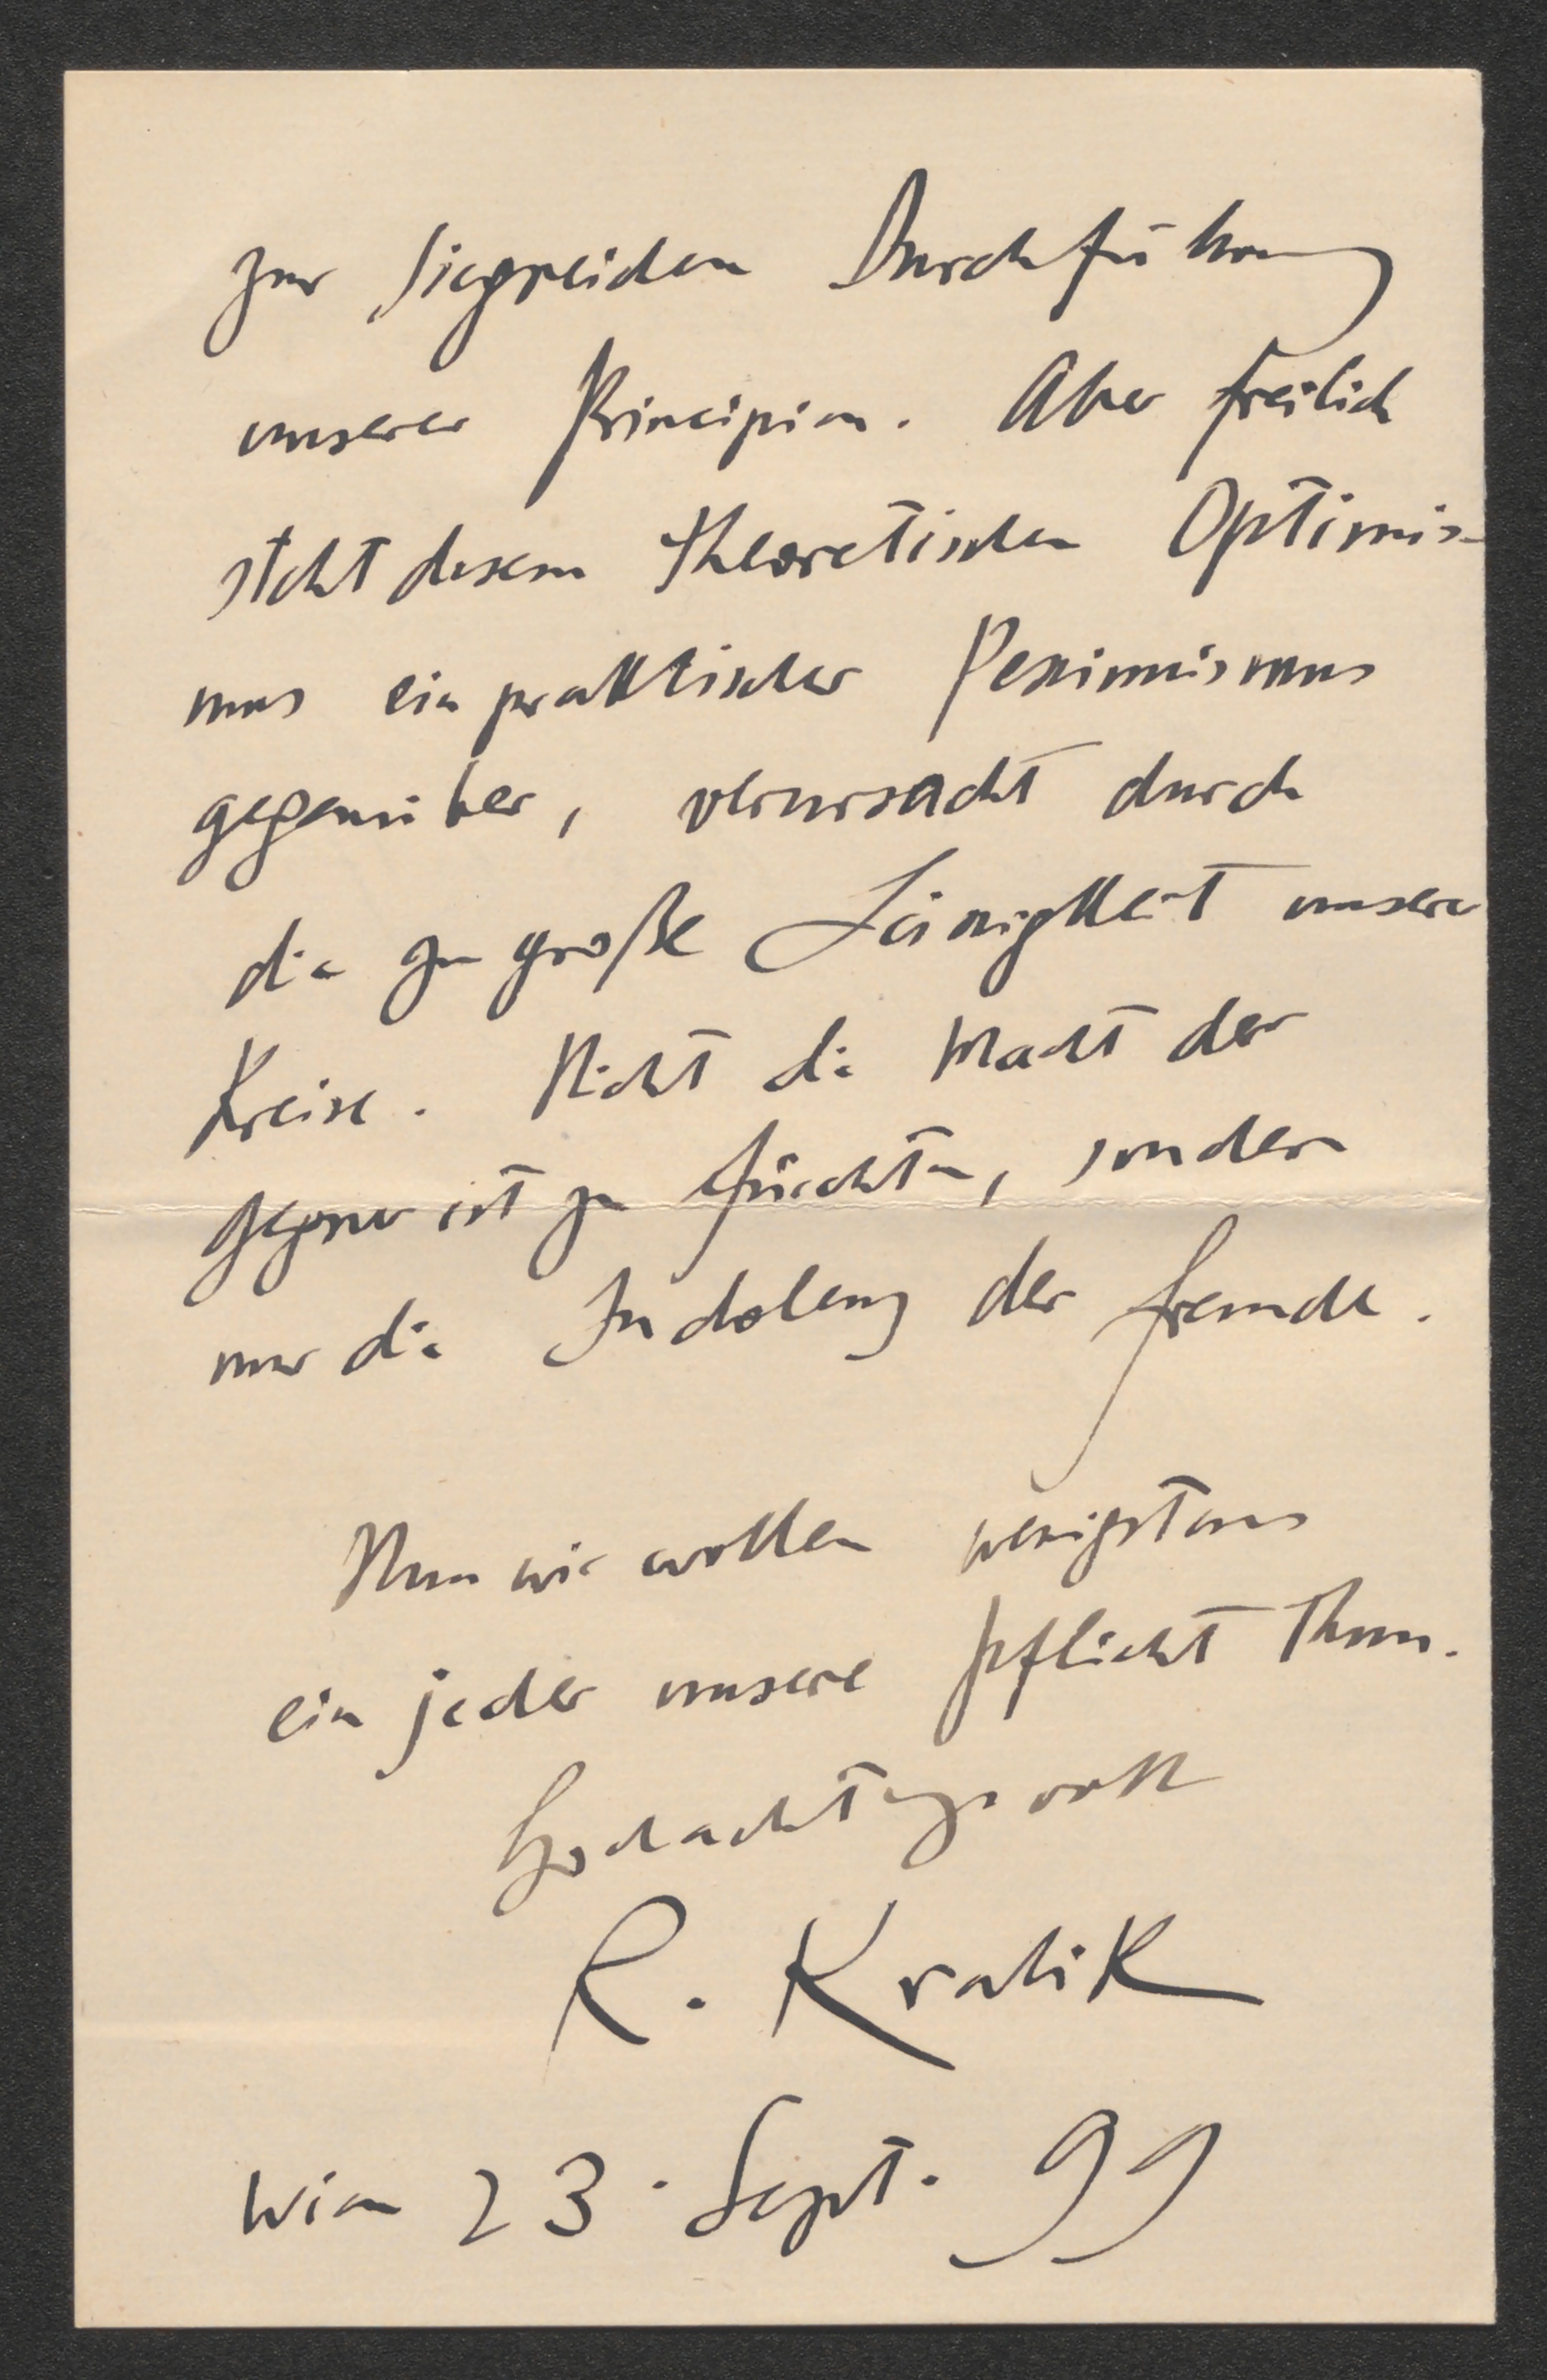 zur siegreichen Durchführung
unserer Principien. Aber freilich
steht diesem theoretischen Optimis-
mus ein praktischer Pessimismus
gegenüber, verursacht durch
die zu große Läsigkeit unserer
Kreise. Nicht die Macht der
Gegner ist zu fürchten, sondern
nur die Indolenz der Freunde.
Nun wir wollen wenigstens
ein jeder unsere Pflicht thun.
Hochachtungsvoll
R. Kralik
Wien 23. Sept. 99